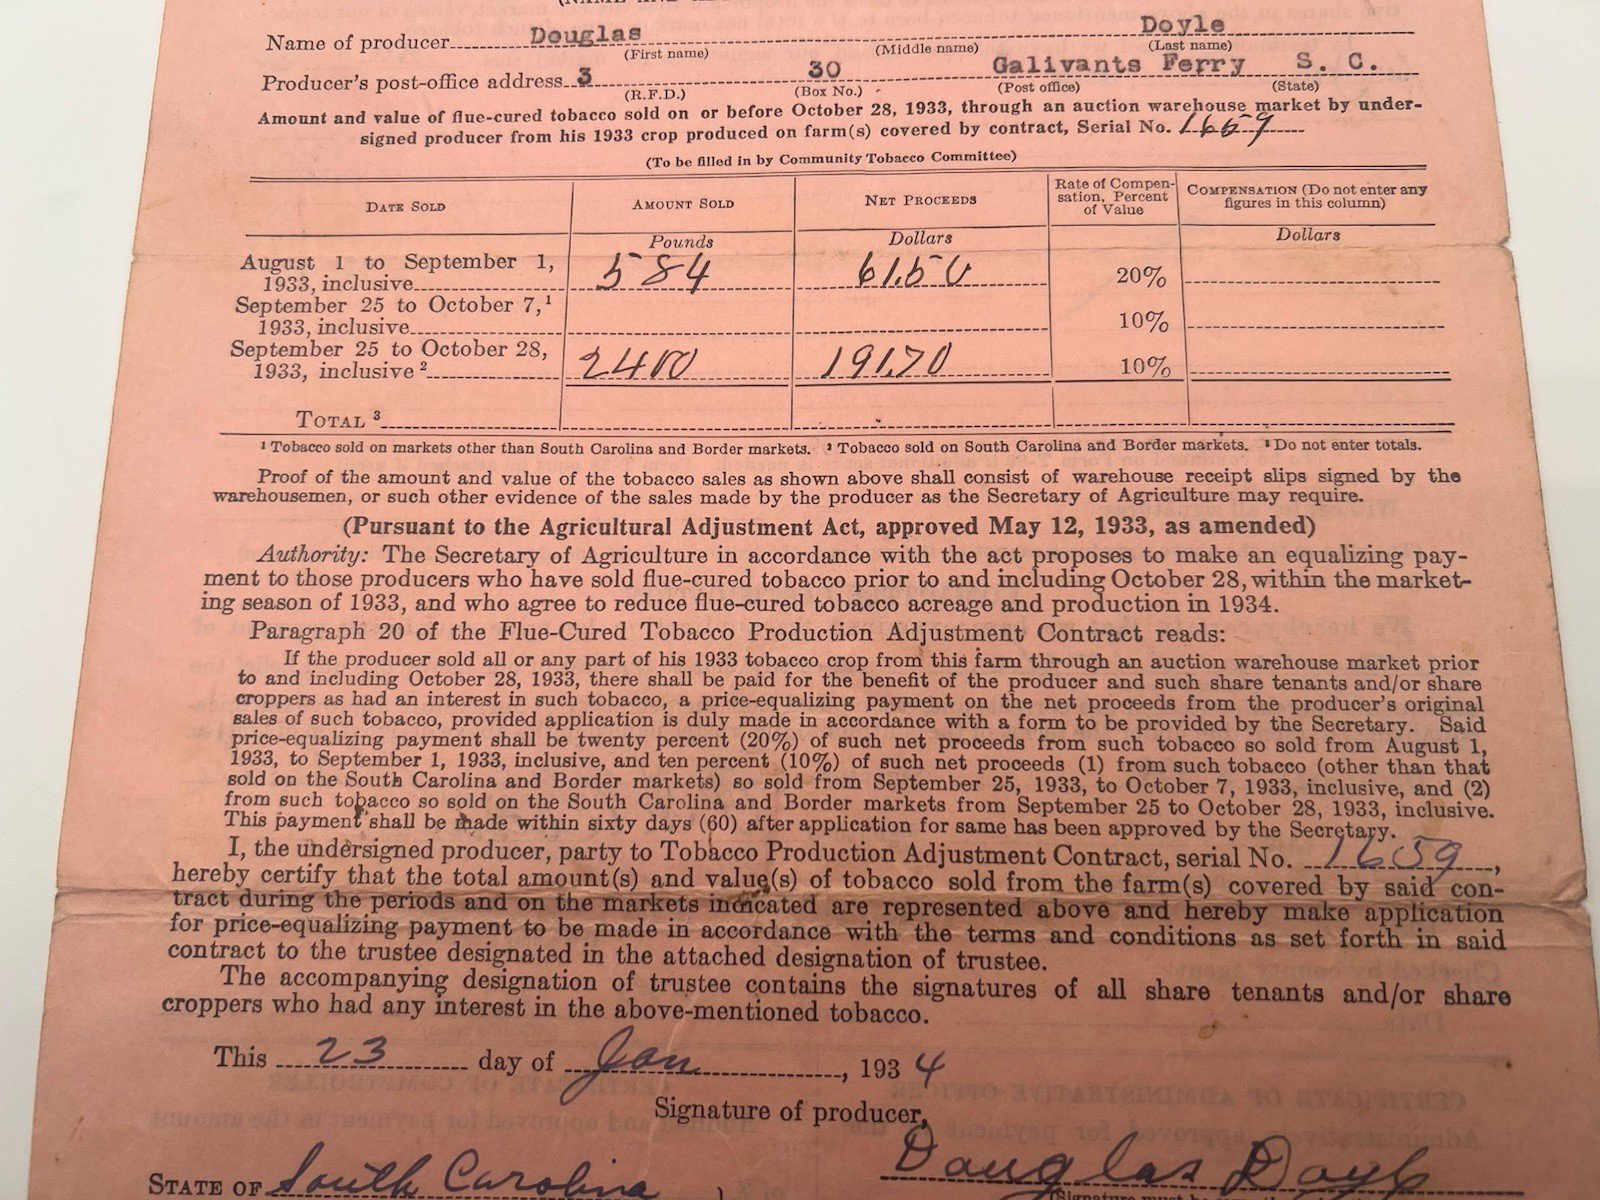 Name of producer Douglas Doyle
(First name) (Middle name) (Last name)
Producer's post-office address 3 30 Galivants Ferry S. C.
(R.F.D.) (Box No.) (Post office) (State)
Amount and value of flue-cured tobacco sold on or before October 28, 1933, through an auction warehouse market by under-
signed producer from his 1933 crop produced on farm(s) covered by contract, Serial No. 1659
(To be filled in by Community Tobacco Committee)
DATE SOLD AMOUNT SOLD NET PROCEEDS Rate of Compen-sation, Percent of Value COMPENSATION (Do not enter any figures in this column)
Pounds Dollars Dollars
August 1 to September 1,
1933, inclusive 584 61.50 20%
September 25 to October 7,¹
1933, inclusive 10%
September 25 to October 28,
1933, inclusive ² 2400 191.70 10%
TOTAL ³
¹ Tobacco sold on markets other than South Carolina and Border markets. ² Tobacco sold on South Carolina and Border markets. ³ Do not enter totals.
Proof of the amount and value of the tobacco sales as shown above shall consist of warehouse receipt slips signed by the
warehousemen, or such other evidence of the sales made by the producer as the Secretary of Agriculture may require.
(Pursuant to the Agricultural Adjustment Act, approved May 12, 1933, as amended)
Authority: The Secretary of Agriculture in accordance with the act proposes to make an equalizing pay-
ment to those producers who have sold flue-cured tobacco prior to and including October 28, within the market-
ing season of 1933, and who agree to reduce flue-cured tobacco acreage and production in 1934.
Paragraph 20 of the Flue-Cured Tobacco Production Adjustment Contract reads:
If the producer sold all or any part of his 1933 tobacco crop from this farm through an auction warehouse market prior
to and including October 28, 1933, there shall be paid for the benefit of the producer and such share tenants and/or share
croppers as had an interest in such tobacco, a price-equalizing payment on the net proceeds from the producer's original
sales of such tobacco, provided application is duly made in accordance with a form to be provided by the Secretary. Said
price-equalizing payment shall be twenty percent (20%) of such net proceeds from such tobacco so sold from August 1,
1933, to September 1, 1933, inclusive, and ten percent (10%) of such net proceeds (1) from such tobacco (other than that
sold on the South Carolina and Border markets) so sold from September 25, 1933, to October 7, 1933, inclusive, and (2)
from such tobacco so sold on the South Carolina and Border markets from September 25 to October 28, 1933, inclusive.
This payment shall be made within sixty days (60) after application for same has been approved by the Secretary.
I, the undersigned producer, party to Tobacco Production Adjustment Contract, serial No. 1659,
hereby certify that the total amount(s) and value(s) of tobacco sold from the farm(s) covered by said con-
tract during the periods and on the markets indicated are represented above and hereby make application
for price-equalizing payment to be made in accordance with the terms and conditions as set forth in said
contract to the trustee designated in the attached designation of trustee.
The accompanying designation of trustee contains the signatures of all share tenants and/or share
croppers who had any interest in the above-mentioned tobacco.
This 23 day of Jan, 1934
Signature of producer,
Douglas Doyle
STATE OF South Carolina